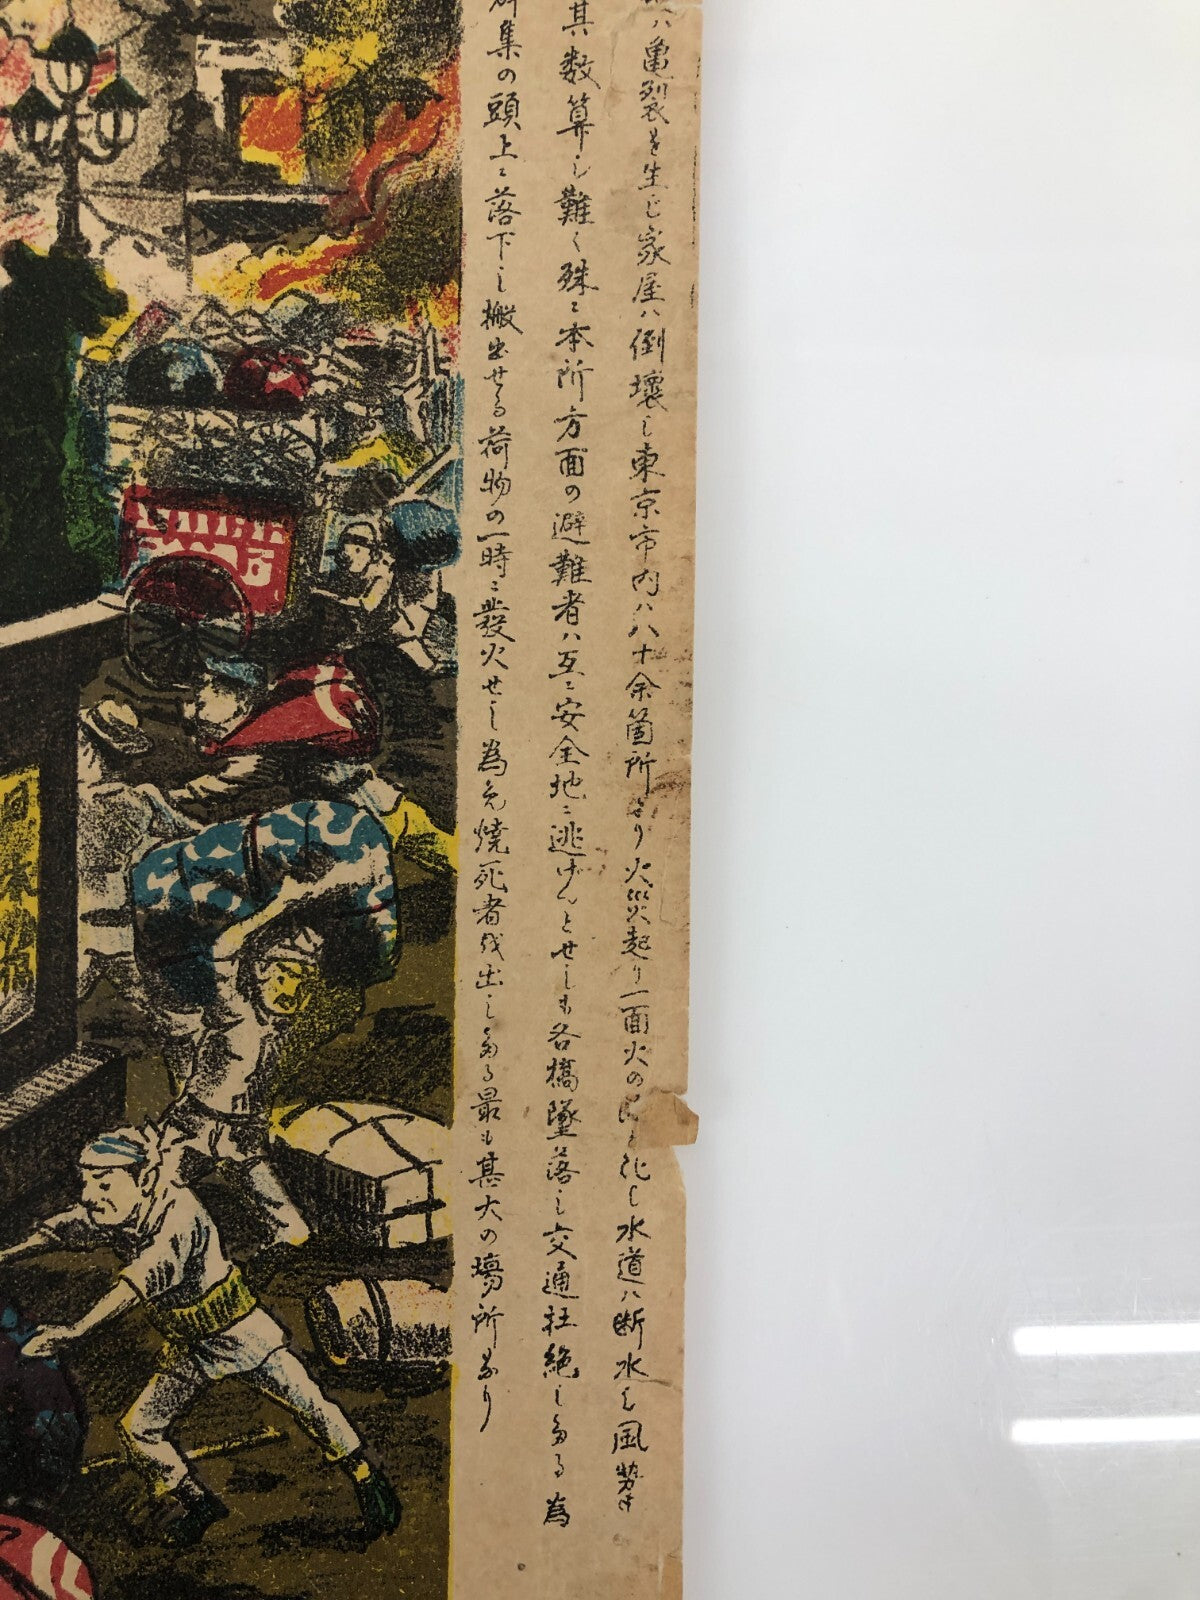 ハ亀裂を生じ家屋ハ倒壊し東京市内ハ八十余箇所より火災起り一面火の と化し水道ハ断水し風勢
其数算し難く殊ニ本所方面の避難者ハ互ニ安全地ニ逃げんとせしも各橋墜落し交通杜絶したる為
集の頭上ニ落下し搬出せる荷物の一時ニ発火せし為め焼死者を出したる最も其大の場所なり